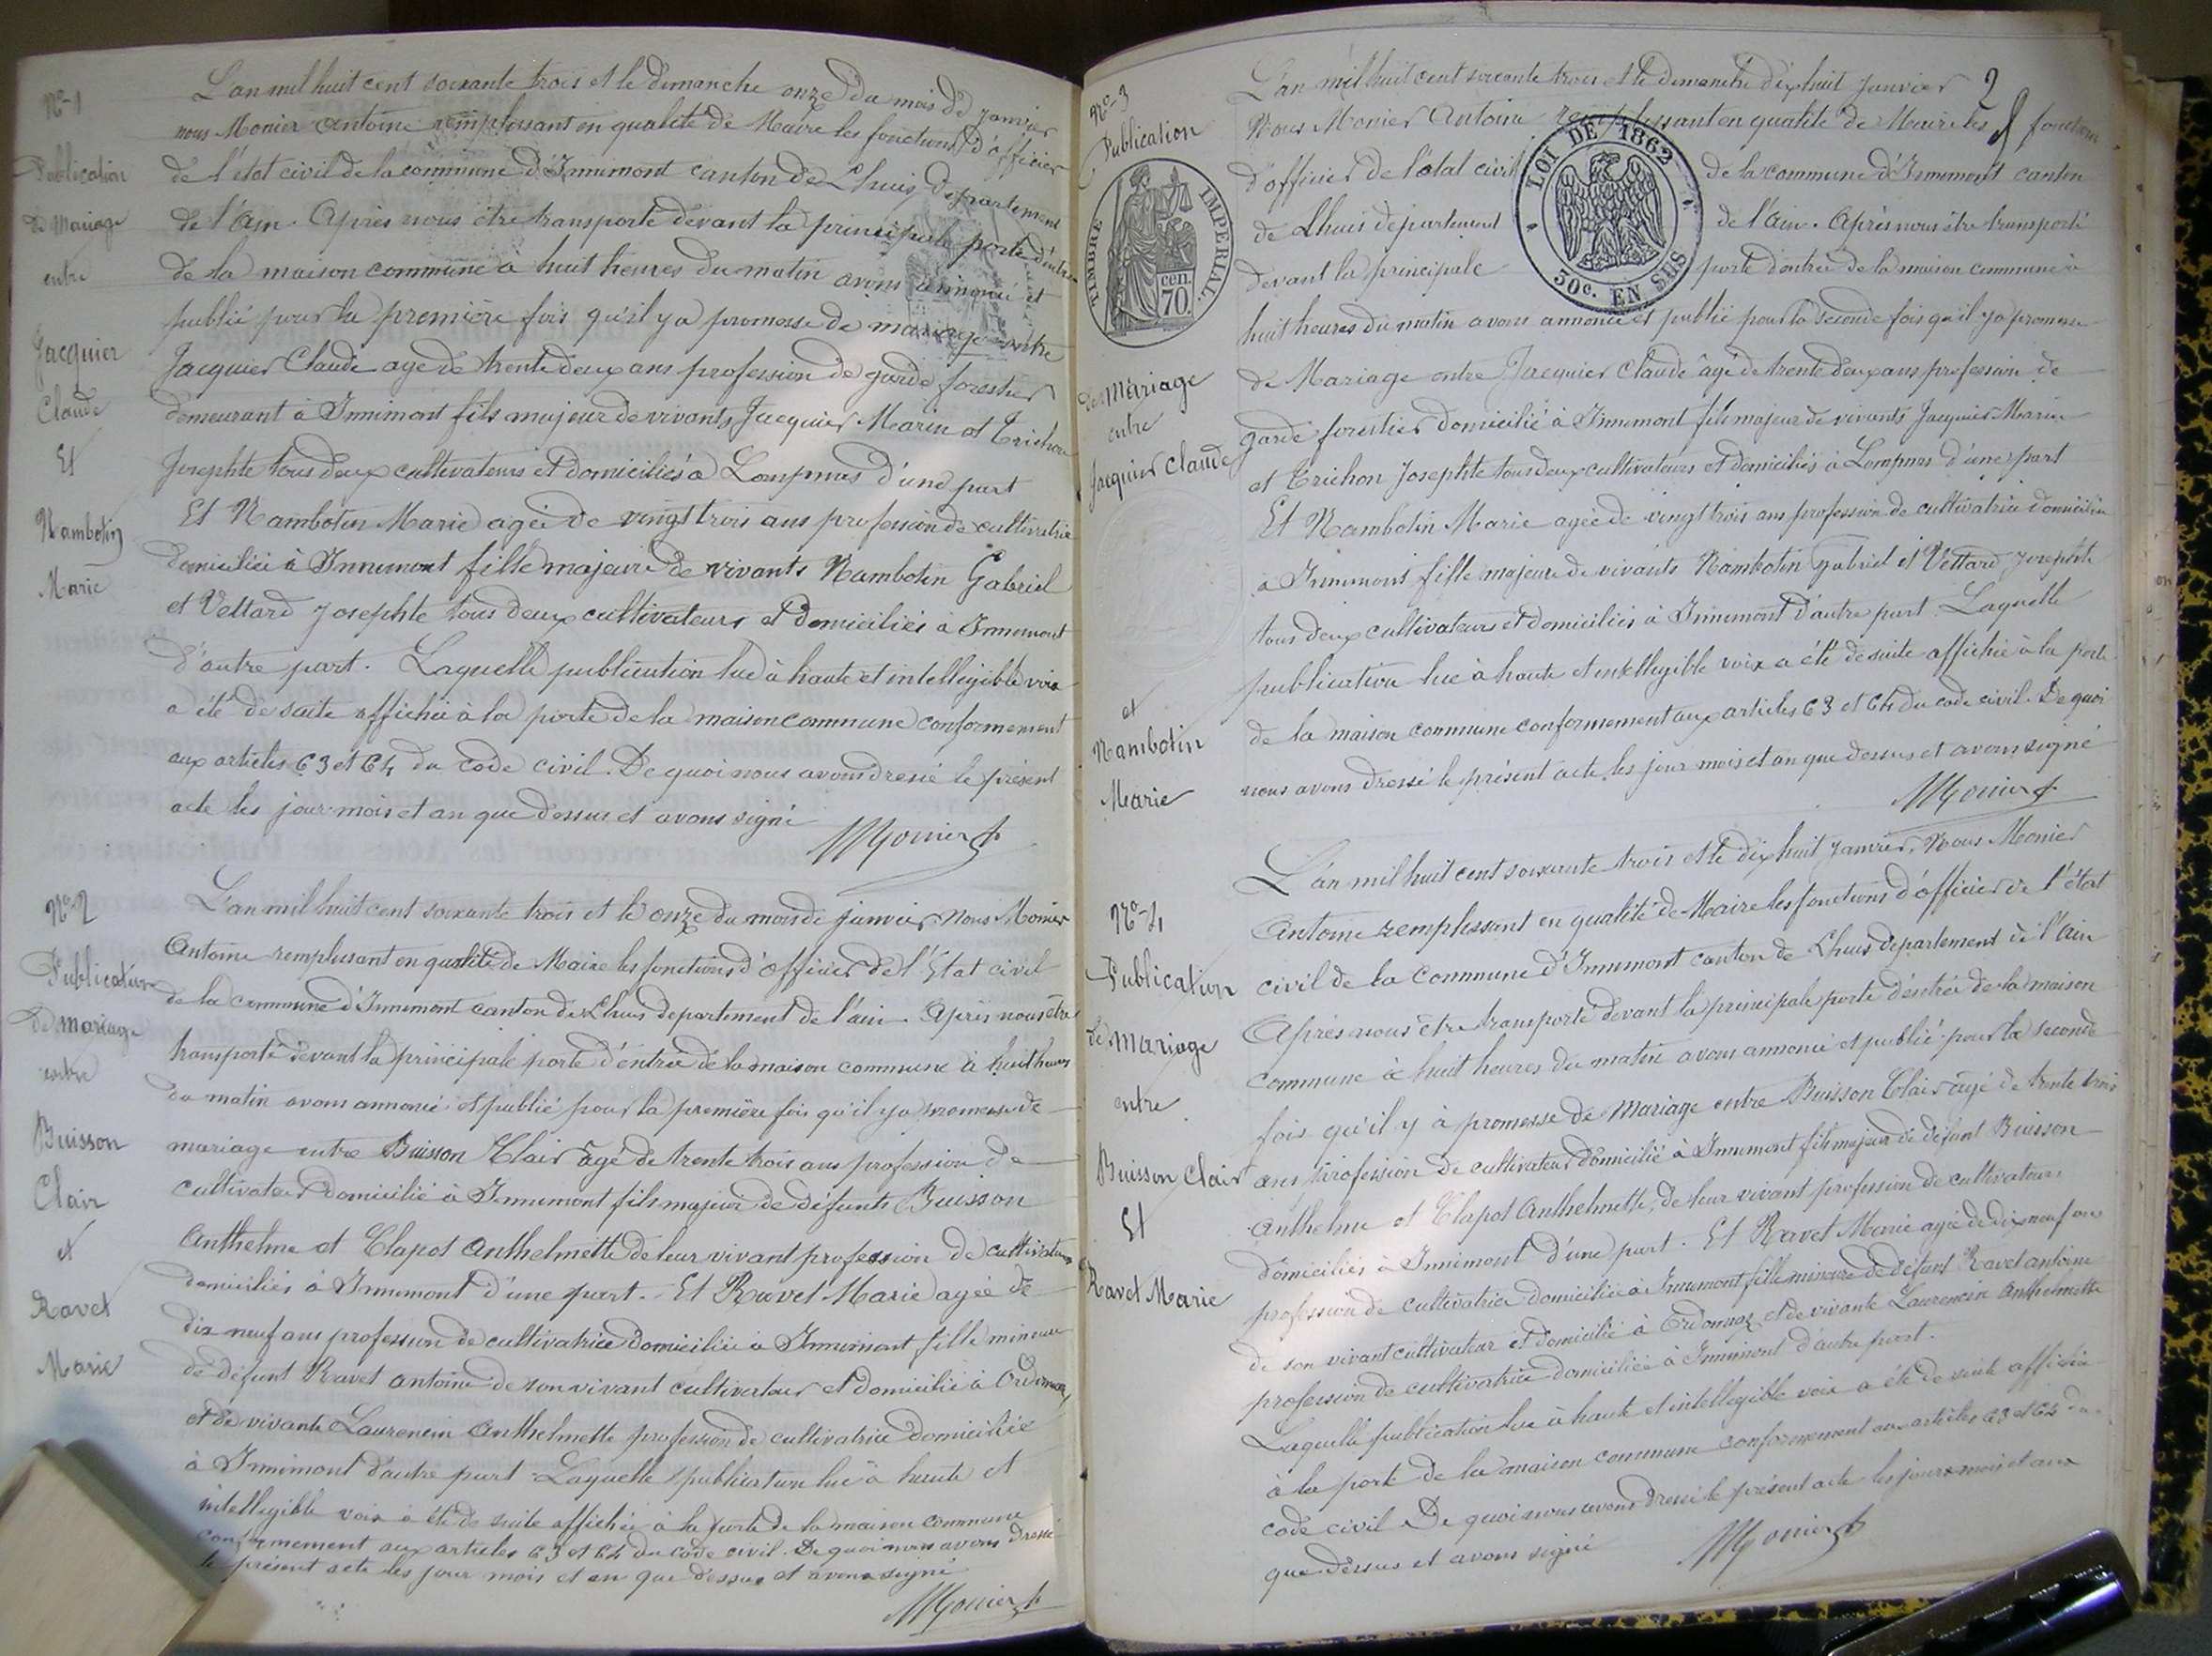 N°-1
Publication
de Mariage
entre
Jacquier
Claude
Et
Nambotin
Marie
L'an mil huit cent soixante trois et le dimanche onze du mois de janvier
nous Monier Antoine remplissant en qualité de Maire les fonctions d'officier
de l'état civil de la commune d'Innimont canton de Lhuis, Département
de l'Ain. Après nous être transporté devant la principale porte d'entrée
de la maison commune à huit heures du matin avons annoncé et
publié pour la première fois qu'il y a promesse de mariage entre
Jacquier Claude agé de trente deux ans profession de garde forestier
demeurant à Innimont fils majeur de vivants Jacquier Marin et Trichon
Josephte tous deux cultivateurs et domiciliés à Lompnas d'une part
Et Nambotin Marie agée de vingt trois ans profession de cultivatrice
domiciliée à Innimont fille majeure de vivants Nambotin Gabriel
et Vettard Josephte tous deux cultivateurs et domiciliés à Innimont
d'autre part. Laquelle publication lue à haute et intellegible voix
a été de suite affichée à la porte de la maison commune conformement
aux articles 63 et 64 du code civil. De quoi nous avons dressé le présent
acte les jour mois et an que dessus et avons signé
Monier
N°-2
Publication
de mariage
entre
Buisson
Clair
et
Ravet
Marie
L'an mil huit cent soixante trois et le onze du mois de janvier Nous Monier
Antoine remplissant en qualité de Maire les fonctions d'officier de l'Etat civil
de la commune d'Innimont canton de Lhuis departement de l'ain. Après nous être
transporté devant la principale porte d'entrée de la maison commune à huit heures
du matin avons annoncé et publié pour la première fois qu'il y a promesse de
mariage entre Buisson Clair âgé de trente trois ans profession de
cultivateur domicilié à Innimont fils majeur de défunts Buisson
Anthelme et Clapot Anthelmette de leur vivant profession de cultivateurs
domiciliés à Innimont d'une part. Et Ravet Marie agée de
dix neuf ans profession de cultivatrice domiciliée à Innimont fille mineure
de défunt Ravet antoine de son vivant cultivateur et domicilié à Ordonnaz
et de vivante Laurencin Anthelmette profession de cultivatrice domiciliée
à Innimont d'autre part Laquelle publication lue à haute et
intellegible voix à été de suite affichée à la porte de la maison commune
conformement aux articles 63 et 64 du code civil. De quoi nous avons dressé
le présent acte les jour mois et an que dessus et avons signé
Monier
2
N°-3
Publication
TIMBRE IMPERIAL.
cen.
70.
de Mariage
entre
Jacquier Claude
et
Nambotin
Marie
LOI DE 1862
50c. EN SUS
L'an mil huit cent soixante trois et le dimanche dix huit janvier
Nous Monier Antoine remplissant en qualité de Maire les fonctions
d'officier de l'état civil de la commune d'Innimont canton
de Lhuis département de l'Ain. Après nous être transporté
devant la principale porte d'entrée de la maison commune à
huit heures du matin avons annoncé et publié pour la seconde fois qu'il y a promesse
de Mariage entre Jacquier Claude âgé de trente deux ans profession de
garde forestier domicilié à Innimont fils majeur de vivants Jacquier Marin
et Trichon Josephte tous deux cultivateurs et domiciliés à Lompnas d'une part
Et Nambotin Marie agée de vingt trois ans profession de cultivatrice domiciliée
à Innimont fille majeure de vivants Nambotin gabriel et Vettard Josephte
tous deux cultivateurs et domiciliés à Innimont d'autre part Laquelle
publication lue à haute et intellegible voix a été de suite affichée à la porte
de la maison commune conformement aux articles 63 et 64 du code civil. De quoi
nous avons dressé le présent acte les jour mois et an que dessus et avons signé
Monier
N°-4
Publication
de Mariage
entre
Buisson Clair
Et
Ravet Marie
L'an mil huit cent soixante trois et le dix huit janvier, Nous Monier
Antoine remplissant en qualité de Maire les fonctions d'officier de l'état
civil de la Commune d'Innimont canton de Lhuis departement de l'Ain
Après nous être transporté devant la principale porte d'entrée de la maison
commune à huit heures du matin avons annoncé et publié pour la seconde
fois qu'il y à promesse de Mariage entre Buisson Clair âgé de trente trois
ans profession de cultivateur domicilié à Innimont fils majeur de défunt Buisson
Anthelme et Clapot Anthelmette, de leur vivant profession de cultivateurs
domiciliés à Innimont d'une part. Et Ravet Marie agée de dix neuf ans
profession de cultivatrice domiciliée à Innimont fille mineure de défunt Ravet antoine
de son vivant cultivateur et domicilié à Ordonnaz et de vivante Laurencin Anthelmette
profession de cultivatrice domiciliée à Innimont d'autre part.
Laquelle publication lue à haute et intellegible voix a été de suite affichée
à la porte de la maison commune conformement aux articles 63 et 64 du
code civil De quoi nous avons dressé le présent acte les jours mois et an
que dessus et avons signé
Monier